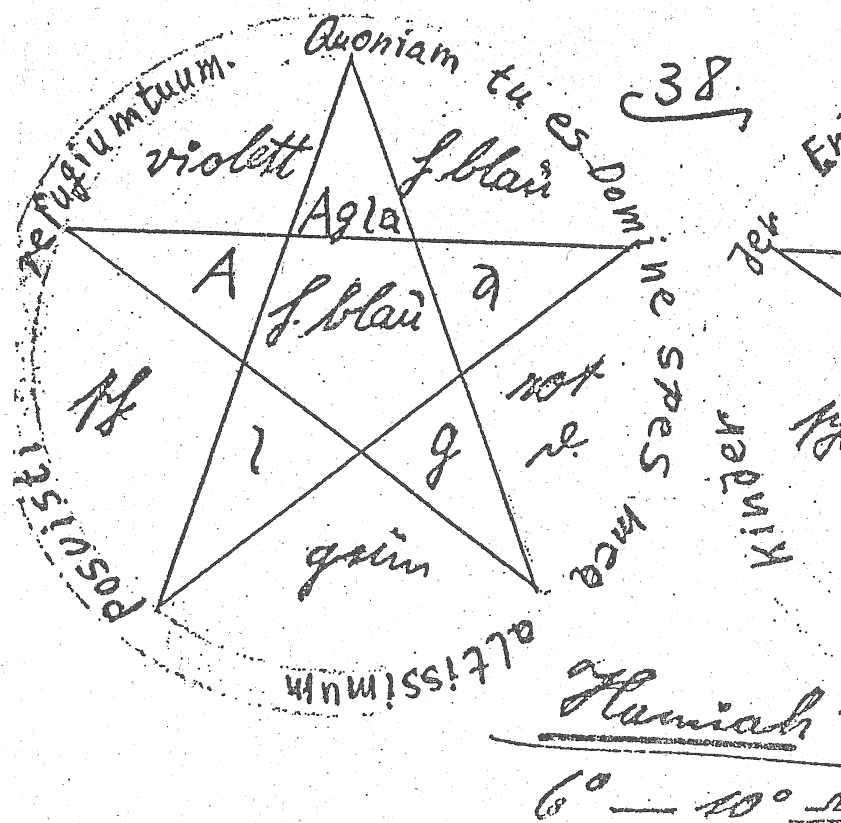 Quoniam tu es Domine spes mea altissimum Posuisti refugium tuum.
38.
violett
f. blaũ
Agla
A
a
f. blaũ
rot
l
g
grün
der
Kinder
Hamiah
6° — 10°